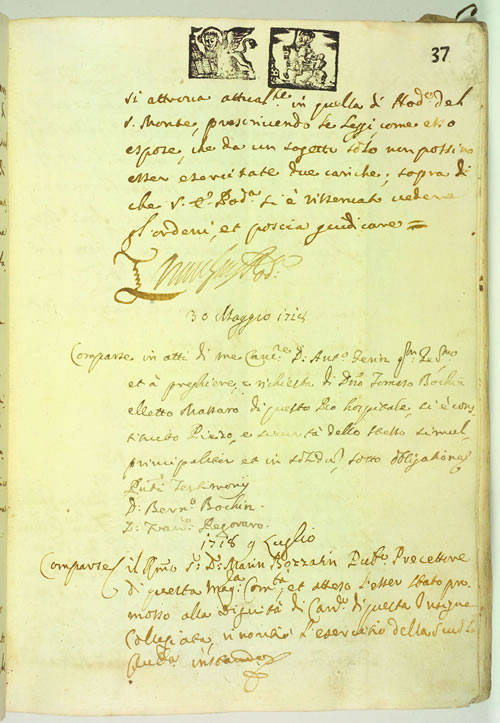 37
si attrova attual.te in quella di Nod.o del
S. Monte, prescrivendo le Leggi, come esso
espose, che da un sogetto solo non possino
esser esercitate due cariche; sopra di
che S. E. Pod.a si è risservato vedere
gl'ordeni, et poscia giudicare =
30 Maggio 1718
Comparse in atti di me Canc.re D: Ant.o Zenin
et à preghiere, e richiesta di D.no Tomaso Bochin
elletto Massaro di questo Pio hospitale, si è cons
tituito Piezo, e sicurtà dello stesso simul,
principaliter et in solidum, sotto obligatione
Testimonij
D: Bern.o Bochin.
D: Fran.co Pegoraro.
1718 9 Luglio
Comparse il S.r D: Marin Bozzatin Pub.o Precettore
di questa Mag.ca Com.tà, et atteso l'esser stato pro
mosso alla Dignità di Can.co di questa Insigne
Collegiata, rinontiò l'esercitio della Scuola
instando